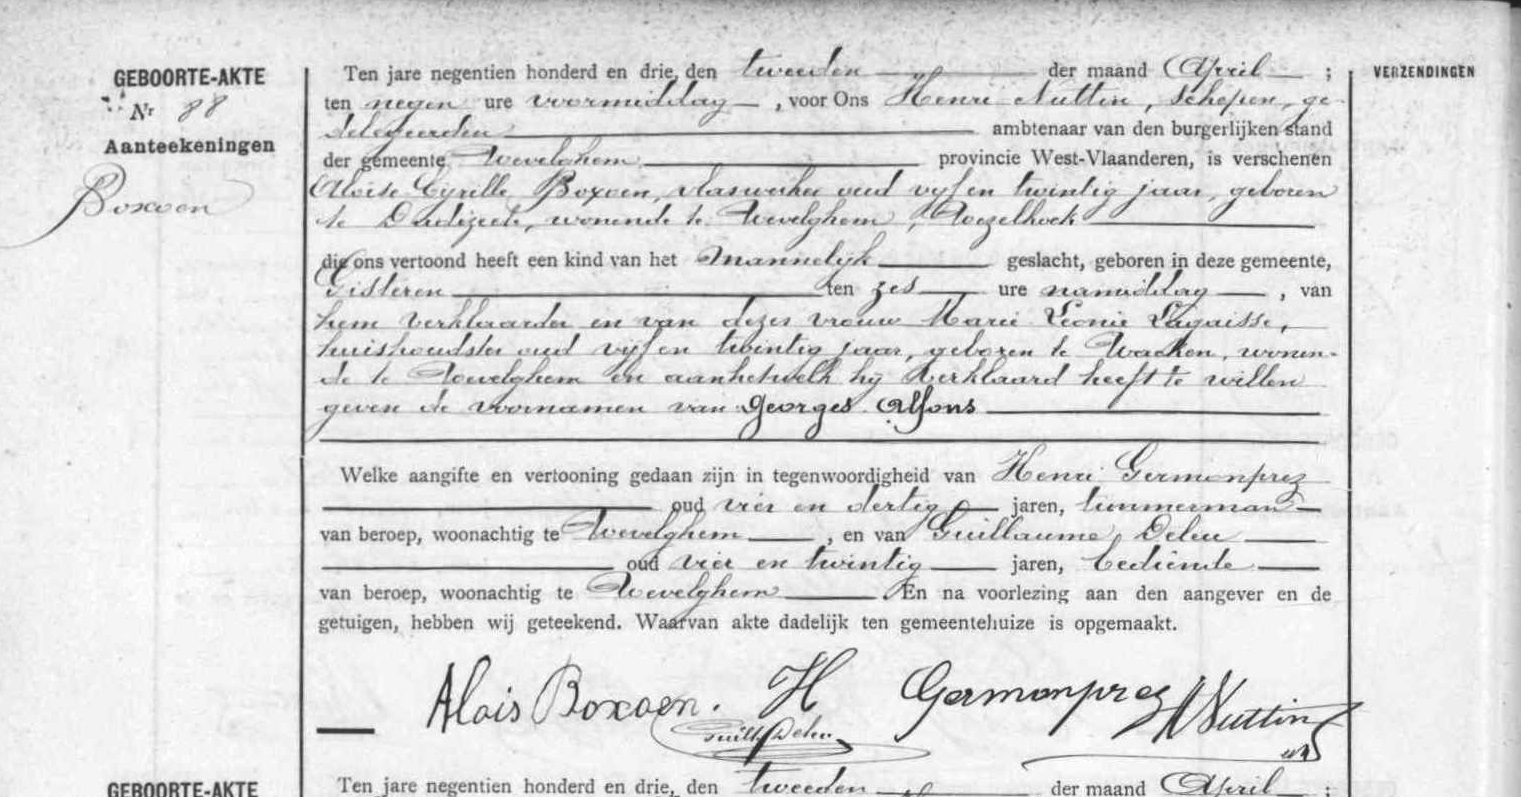 GEBOORTE-AKTE
Nr 88
Aanteekeningen
Boxoen
VERZENDINGEN
Ten jare negentien honderd en drie, den tweeden der maand April ;
ten negen ure voormiddag , voor Ons Henri Nuttin, Schepen, ge-
delegeerden ambtenaar van den burgerlijken stand
der gemeente Wevelghem provincie West-Vlaanderen, is verschenen
Aloïse Cyrille Boxoen, vlaswerker oud vijf en twintig jaar, geboren
te Dadizeele, wonende te Wevelghem, Wezelhoek
die ons vertoond heeft een kind van het mannelijk geslacht, geboren in deze gemeente,
Gisteren ten zes ure namiddag , van
hem verklaarder en van dezes vrouw Marie Leonie Lagaisse,
huishoudster oud vijf en twintig jaar, geboren te Wacken, wonen-
de te Wevelghem en aanhetwelk hij verklaard heeft te willen
geven de voornamen van Georges Alfons
Welke aangifte en vertooning gedaan zijn in tegenwoordigheid van Henri Germonprez
oud vier en dertig jaren, timmerman
van beroep, woonachtig te Wevelghem , en van Guillaume Deleu
oud vier en twintig jaren, bediende
van beroep, woonachtig te Wevelghem . En na voorlezing aan den aangever en de
getuigen, hebben wij geteekend. Waarvan akte dadelijk ten gemeentehuize is opgemaakt.
Alois Boxoen. H Germonprez H Nuttin
Guill Deleu
GEBOORTE-AKTE
Ten jare negentien honderd en drie, den tweeden der maand April ;